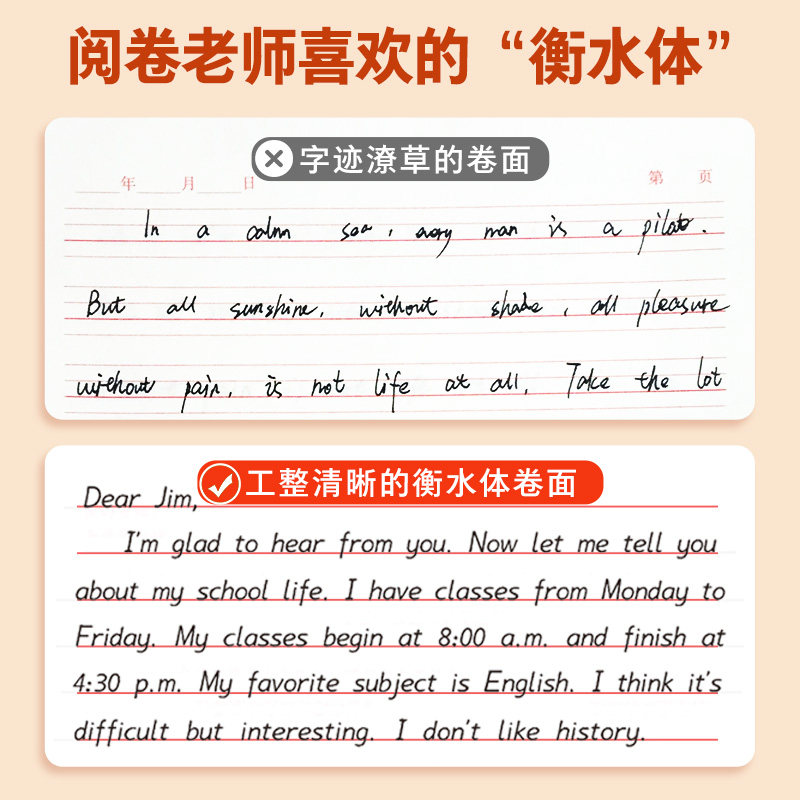 阅卷老师喜欢的“衡水体”
字迹潦草的卷面
年 月 日
第 页
In a calm sea, every man is a pilot.
But all sunshine, without shade, all pleasure
without pain, is not life at all, Take the lot
工整清晰的衡水体卷面
Dear Jim,
I'm glad to hear from you. Now let me tell you
about my school life. I have classes from Monday to
Friday. My classes begin at 8:00 a.m. and finish at
4:30 p.m. My favorite subject is English. I think it's
difficult but interesting. I don't like history.